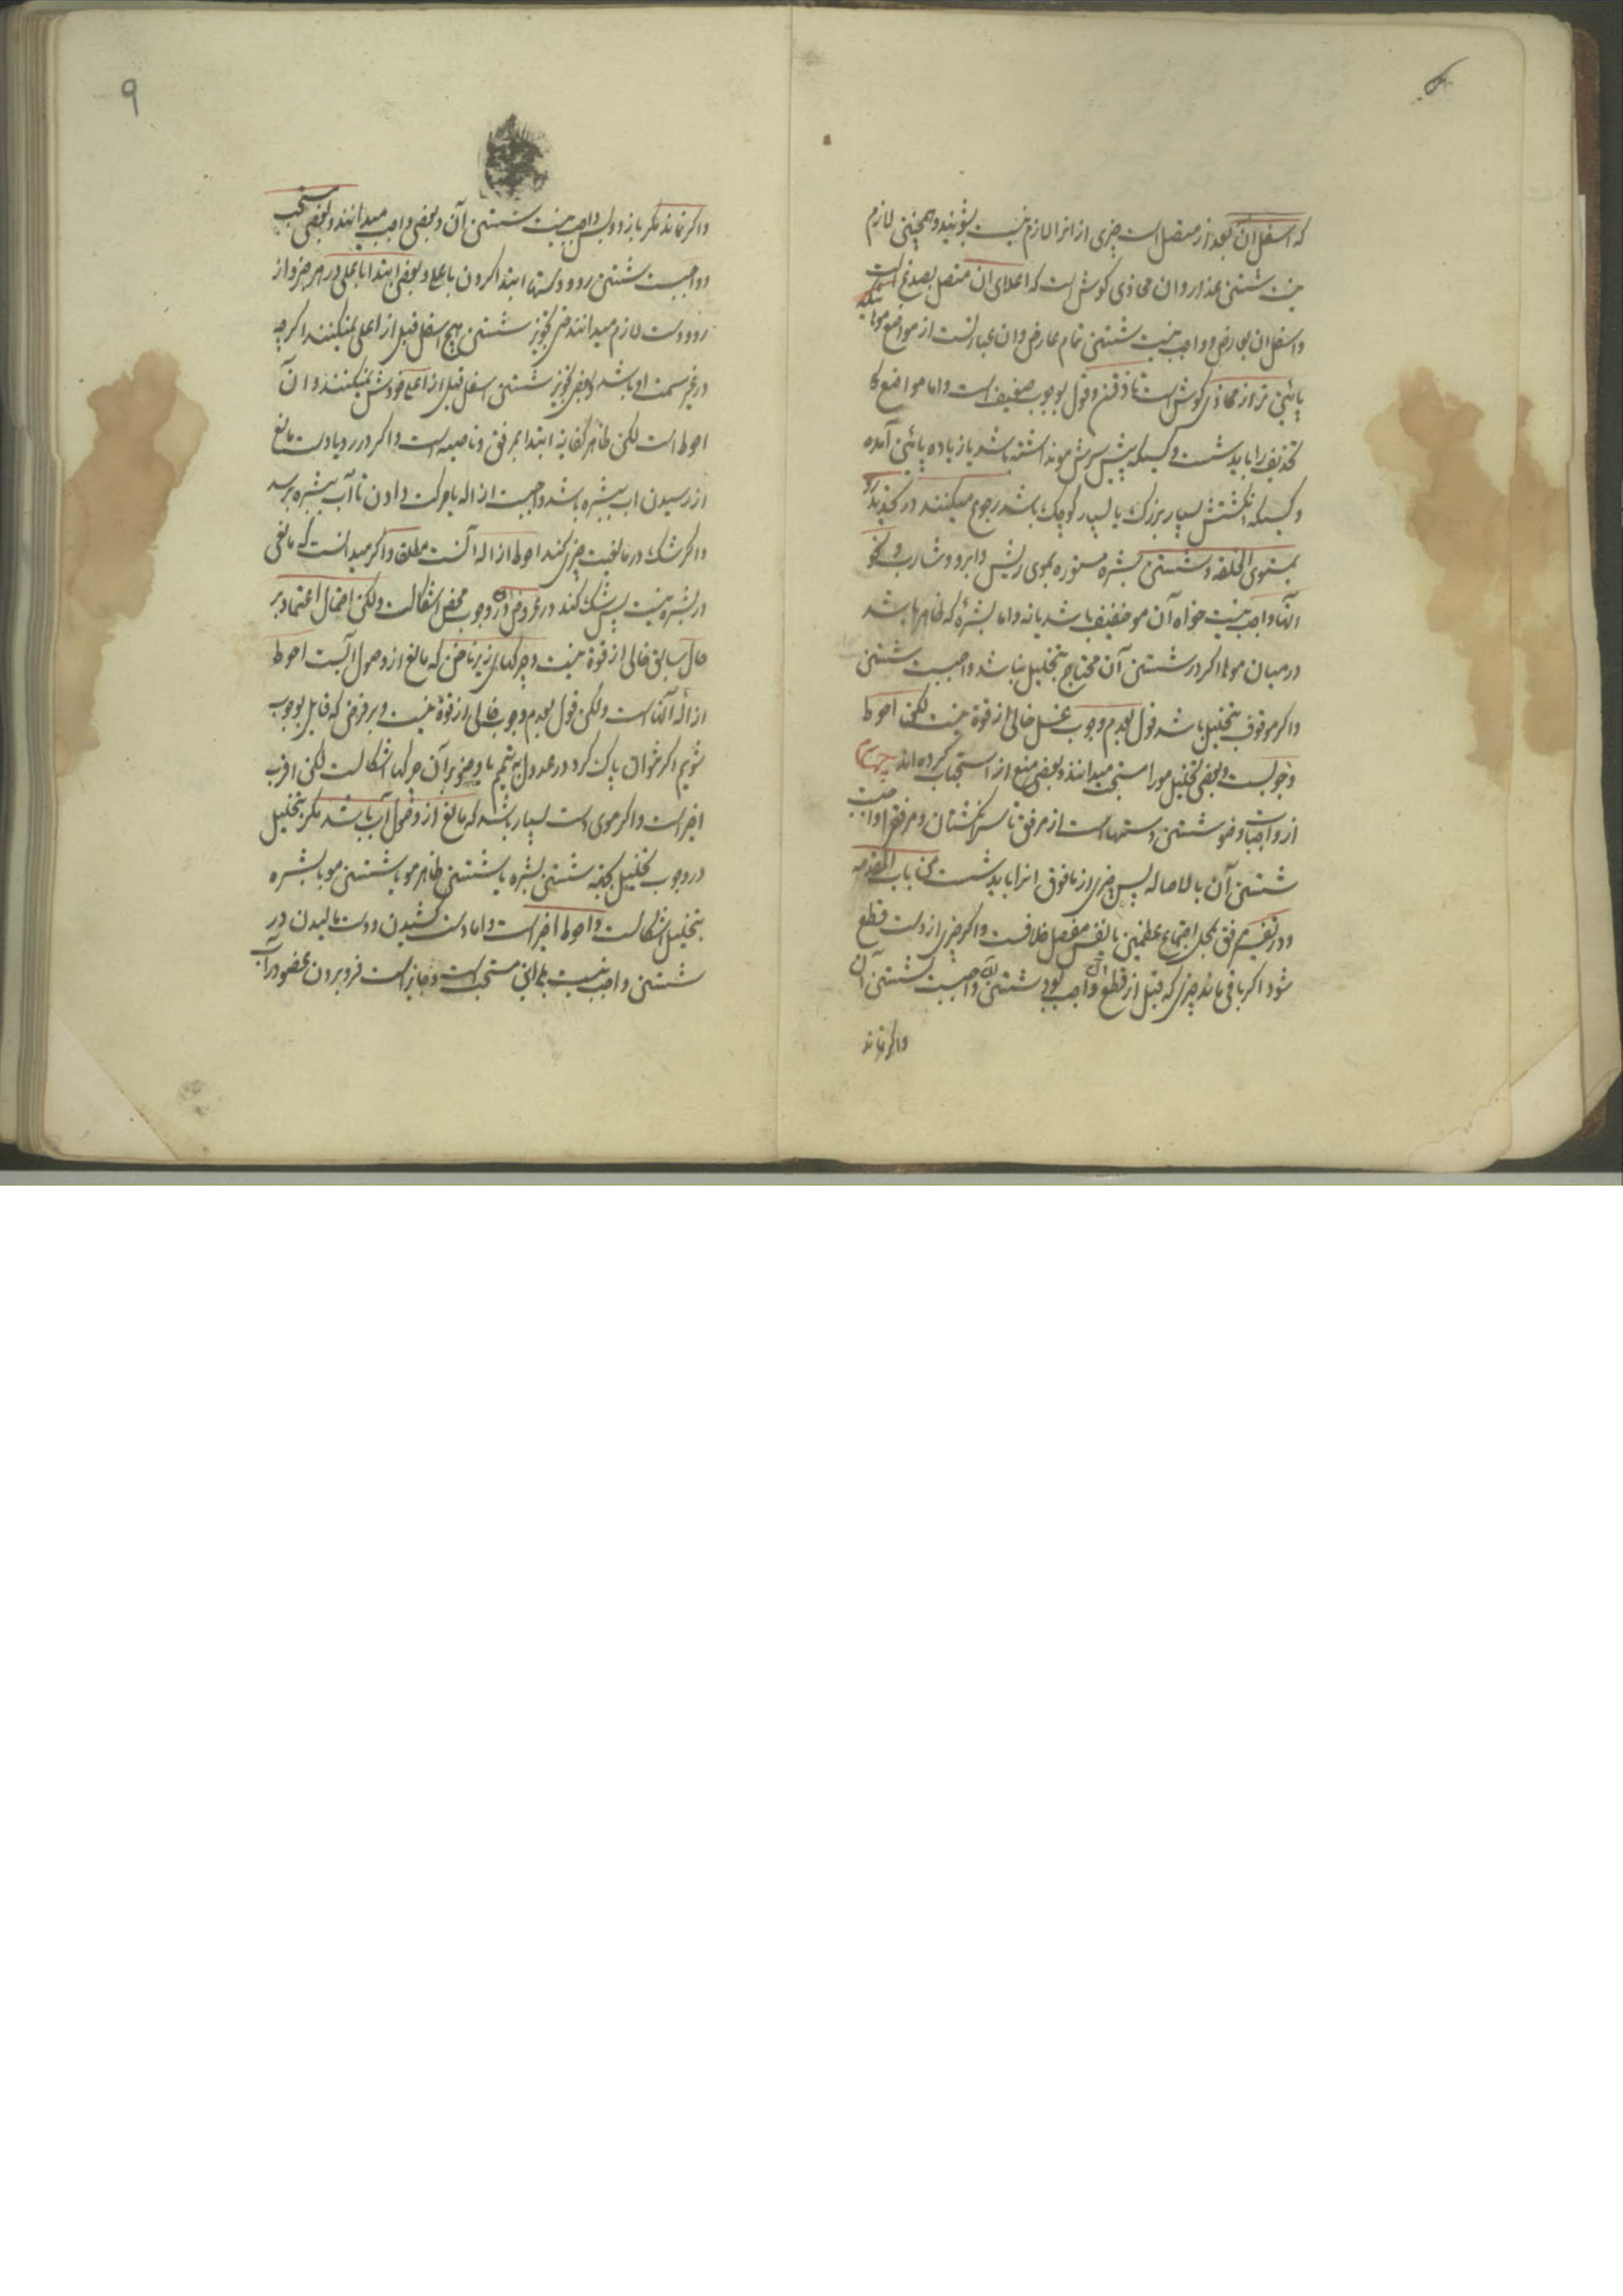 که اسفل آن بعذار متصل است چیزی از انرا لازم نیست بشویند و همچنین لازم
نیست شستن عذار و ان محاذی گوش است که اعلای ان متصل بصدغ است
و اسفل ان بعارض و واجب نیست شستن تمام عارض و ان عبارتست از مواضع موها ئیکه
پائین تر از محاذی گوش است تا ذقن و قول بوجوب ضعیف است و اما مواضع
تحذیف را باید شست و کسیکه پیش سرش مو نداشته باشد یا زیاده پائین آمده
و کسیکه انگشتش بسیار بزرگ یا بسیار کوچک باشد رجوع میکنند در تحدید رو
بمستوی الخلقه و شستن بشره مستوره بموی ریش و ابرو و شارب و نحو
آنها واجب نیست خواه آن مو خفیف باشد یا نه و اما بشرهٔ که ظاهر باشد
در میان موها اگر در شستن آن محتاج بتخلیل نباشد واجبست شستن
و اگر موقوف بتخلیل باشد قول بعدم وجوب غسل خالی از قوة نیست لکن احوط
وجوبست و بعضی تخلیل مو را مستحب میدانند و بعضی منع از استحباب کرده اند چهارم
از واجبات وضو شستن دستهاست از مرفق تا سر انگشتان و مرفق واجب نیست
شستن آن بالاصاله پس چیزی از مافوق انرا باید شست من باب المقدمه
و در تفسیر مرفق بمحل اجتماع عظمین یا نفس مفصل خلافست و اگر چیزی از دست قطع
شود اگر باقی ماند چیزی که قبل از قطع واجب بود شستن آن واجبست شستن آن
و اگر نماند
۹
و اگر نماند مگر بازو و پس واجب نیست شستن آن و بعضی واجب میدانند و بعضی مستحب
و واجبست شستن رو و دستها ابتدا کردن باعلی و بعضی ابتدا باعلی در هر جزو از
رو و دست لازم میدانند حتی تجویز شستن هیچ اسفل قبل از اعلی نمیکنند اگر چه
در غیر سمت او باشد و بعضی تجویز شستن اسفل قبل از اعلی خودش نمیکنند و آن
احوط است لکن ظاهر کفایة ابتدا بمرفق و ناصیه است و اگر در رو یا دست مانع
از رسیدن اب ببشره باشد واجبست ازاله یا حرکت دادن تا آب ببشره برسد
و اگر شک در مانعیت چیزی کند احوط ازاله آنست مطلقا و اگر میدانست که مانعی
در بشره نیست پس شک کند در عروض آن در وجوب فحص اشکالست ولکن احتمال اعتماد بر
حال سابق خالی از قوة نیست و چرکهای زیر ناخن که مانع از وصول آبست احوط
ازالهٔ آنهاست ولکن قول بعدم وجوب خالی از قوة نیست و بر فرض که قایل بوجوب
شویم اگر نتوان پاک کرد در عدول به تیمم یا وضو بر آن چرکها اشکالست لکن اقرب
اخیر است و اگر موی دست بسیار باشد که مانع از وصول آب باشد مگر بتخلیل
در وجوب تخلیل بجهة شستن بشره یا شستن ظاهر مو یا شستن مو با بشره
بتخلیل اشکالست و احوط اخیر است و اما دست کشیدن و دست مالیدن در
شستن واجب نیست بلی این مستحب است و جایز است فرو بردن عضو در آب